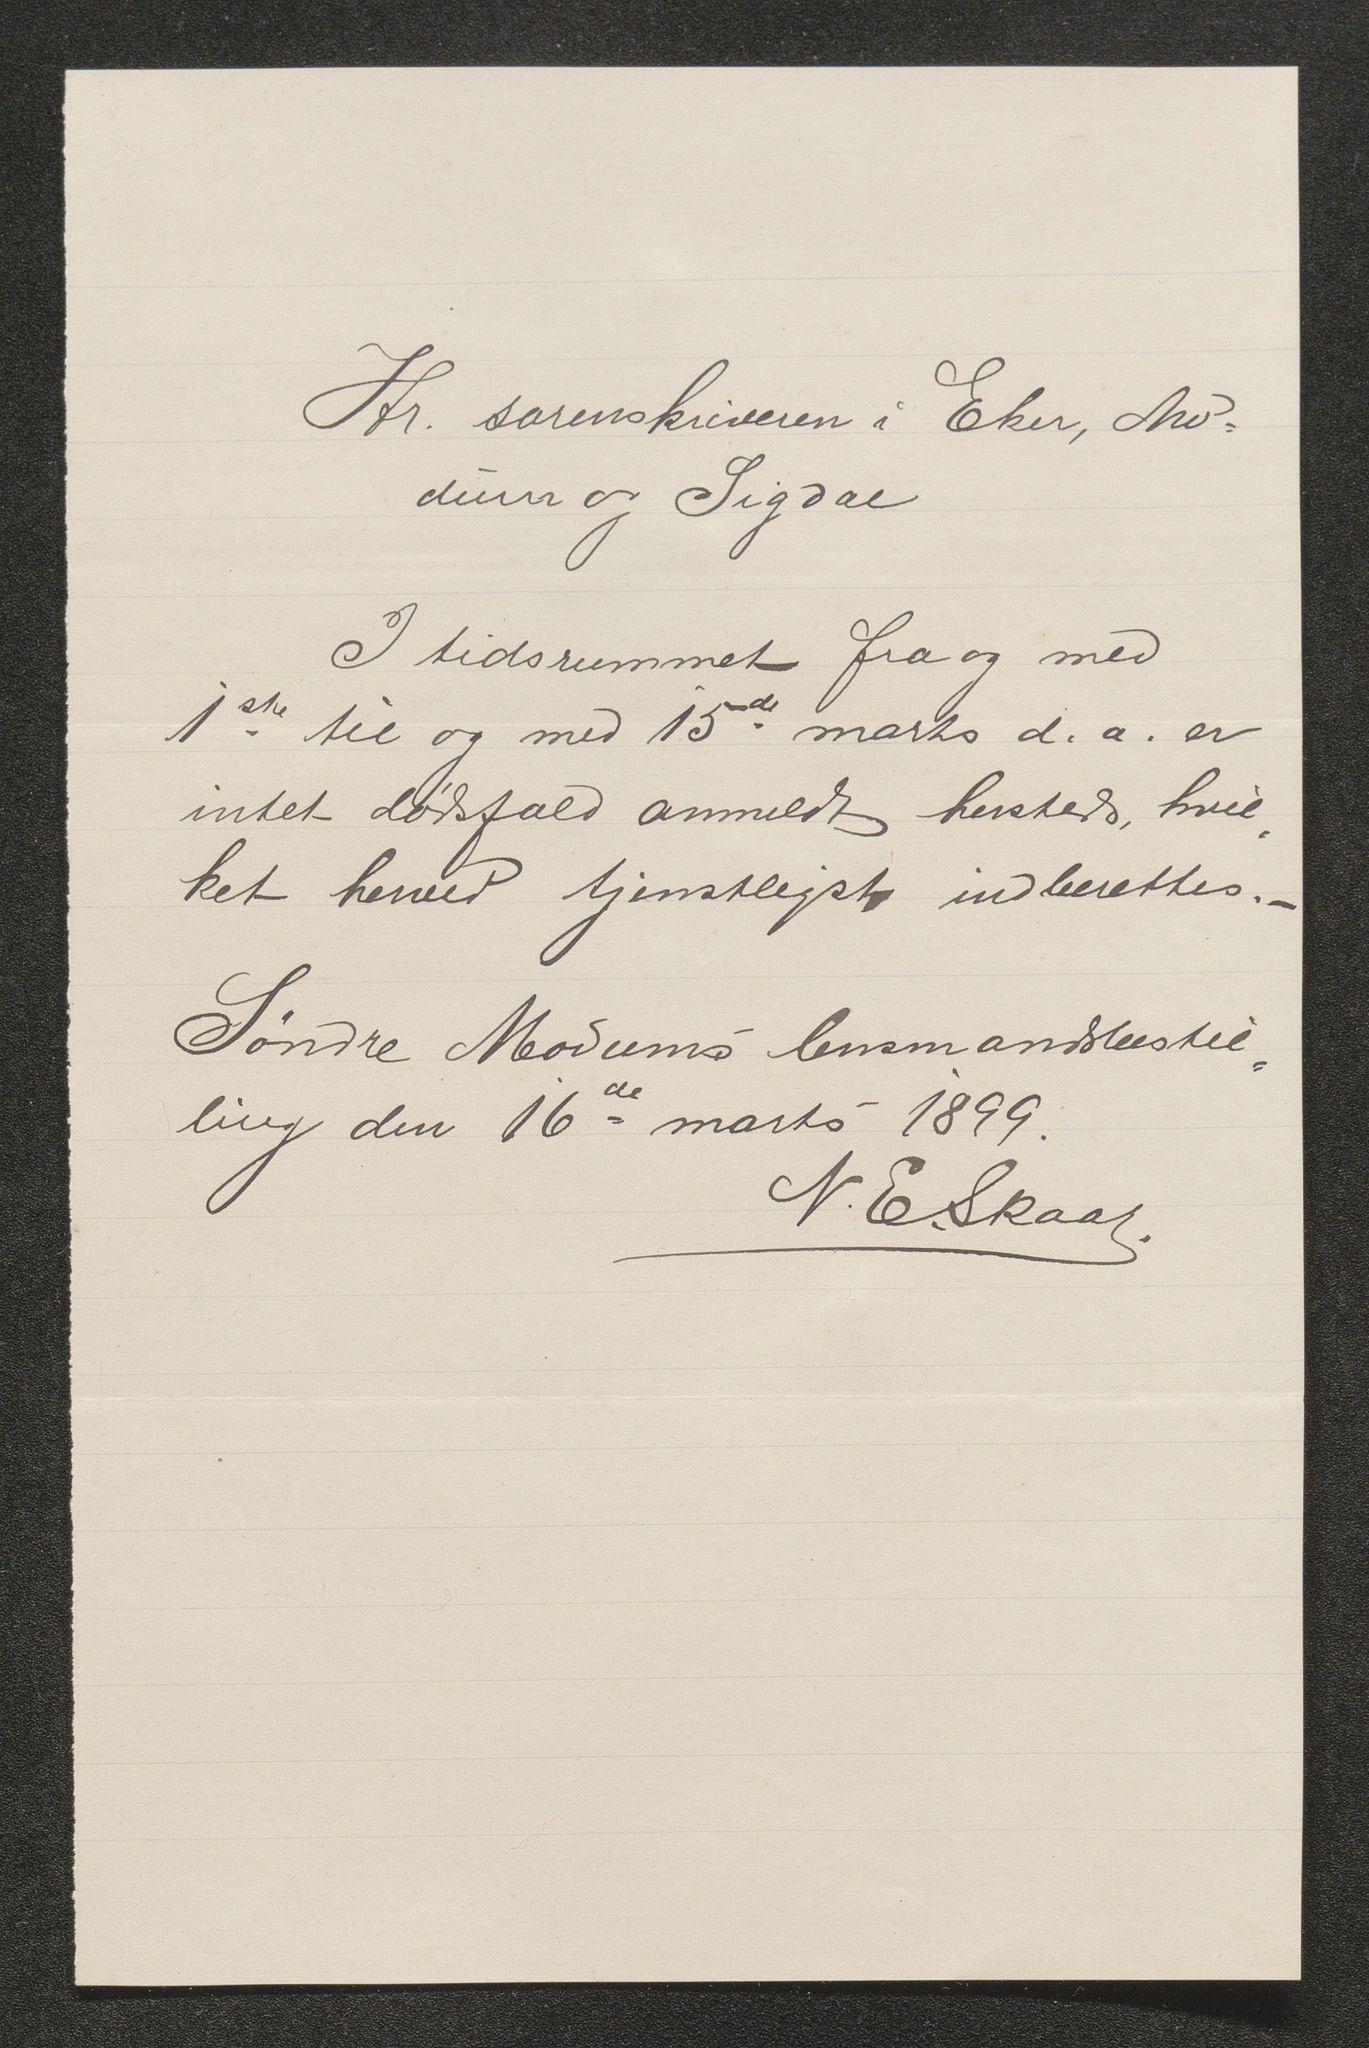 Hr. sorenskriveren i Eker, Mo=
dum og Sigdal
I tidsrummet fra og med
1ste til og med 15de marts d. a. er
intet dødsfald anmeldt hersteds, hvil=
ket herved tjenstligst indberettes.–
Søndre Modums lensmandsbestil=
ling den 16de marts 1899.
N. E. Skaat.